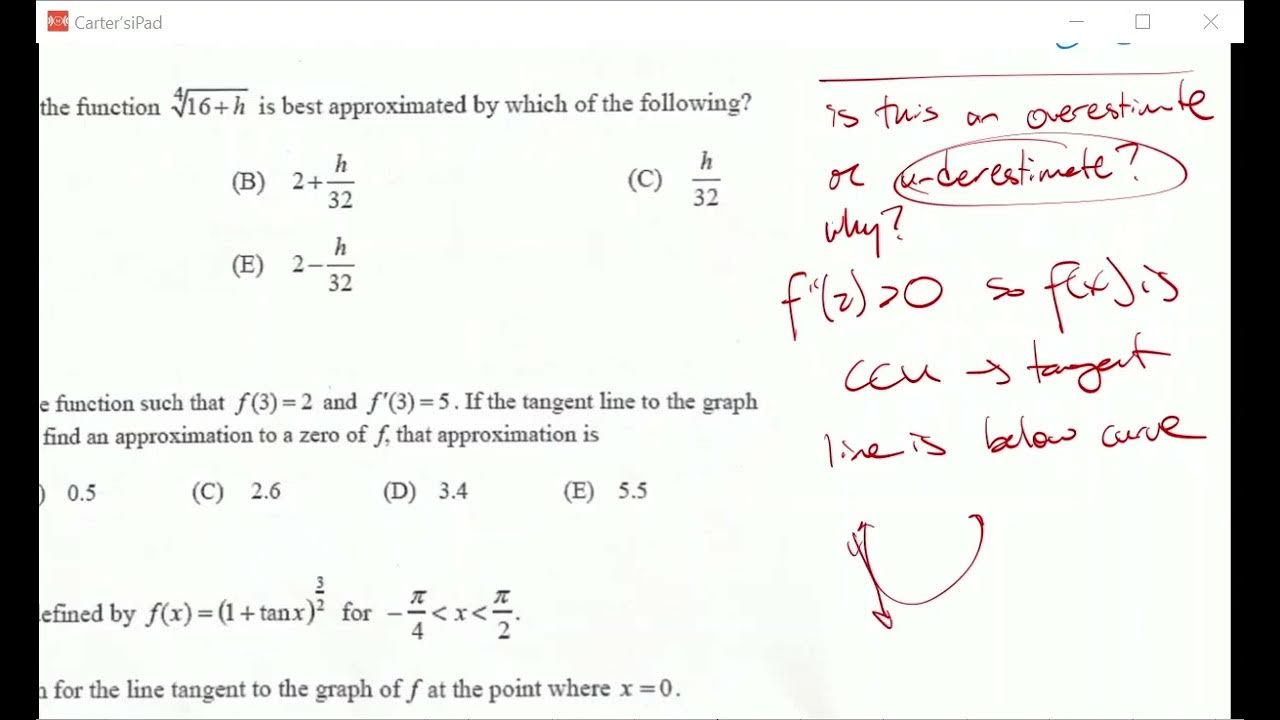 Carter'siPad
the function ∜16+h is best approximated by which of the following?
(B) 2+h/32
(C) h/32
(E) 2−h/32
e function such that f(3)=2 and f′(3)=5. If the tangent line to the graph
find an approximation to a zero of f, that approximation is
) 0.5 (C) 2.6 (D) 3.4 (E) 5.5
efined by f(x)=(1+tanx)^3/2 for −π/4<x<π/2.
n for the line tangent to the graph of f at the point where x=0.
is this an overestimate
or underestimate?
why?
f''(2)>0 so f(x) is
CCU → tangent
line is below curve